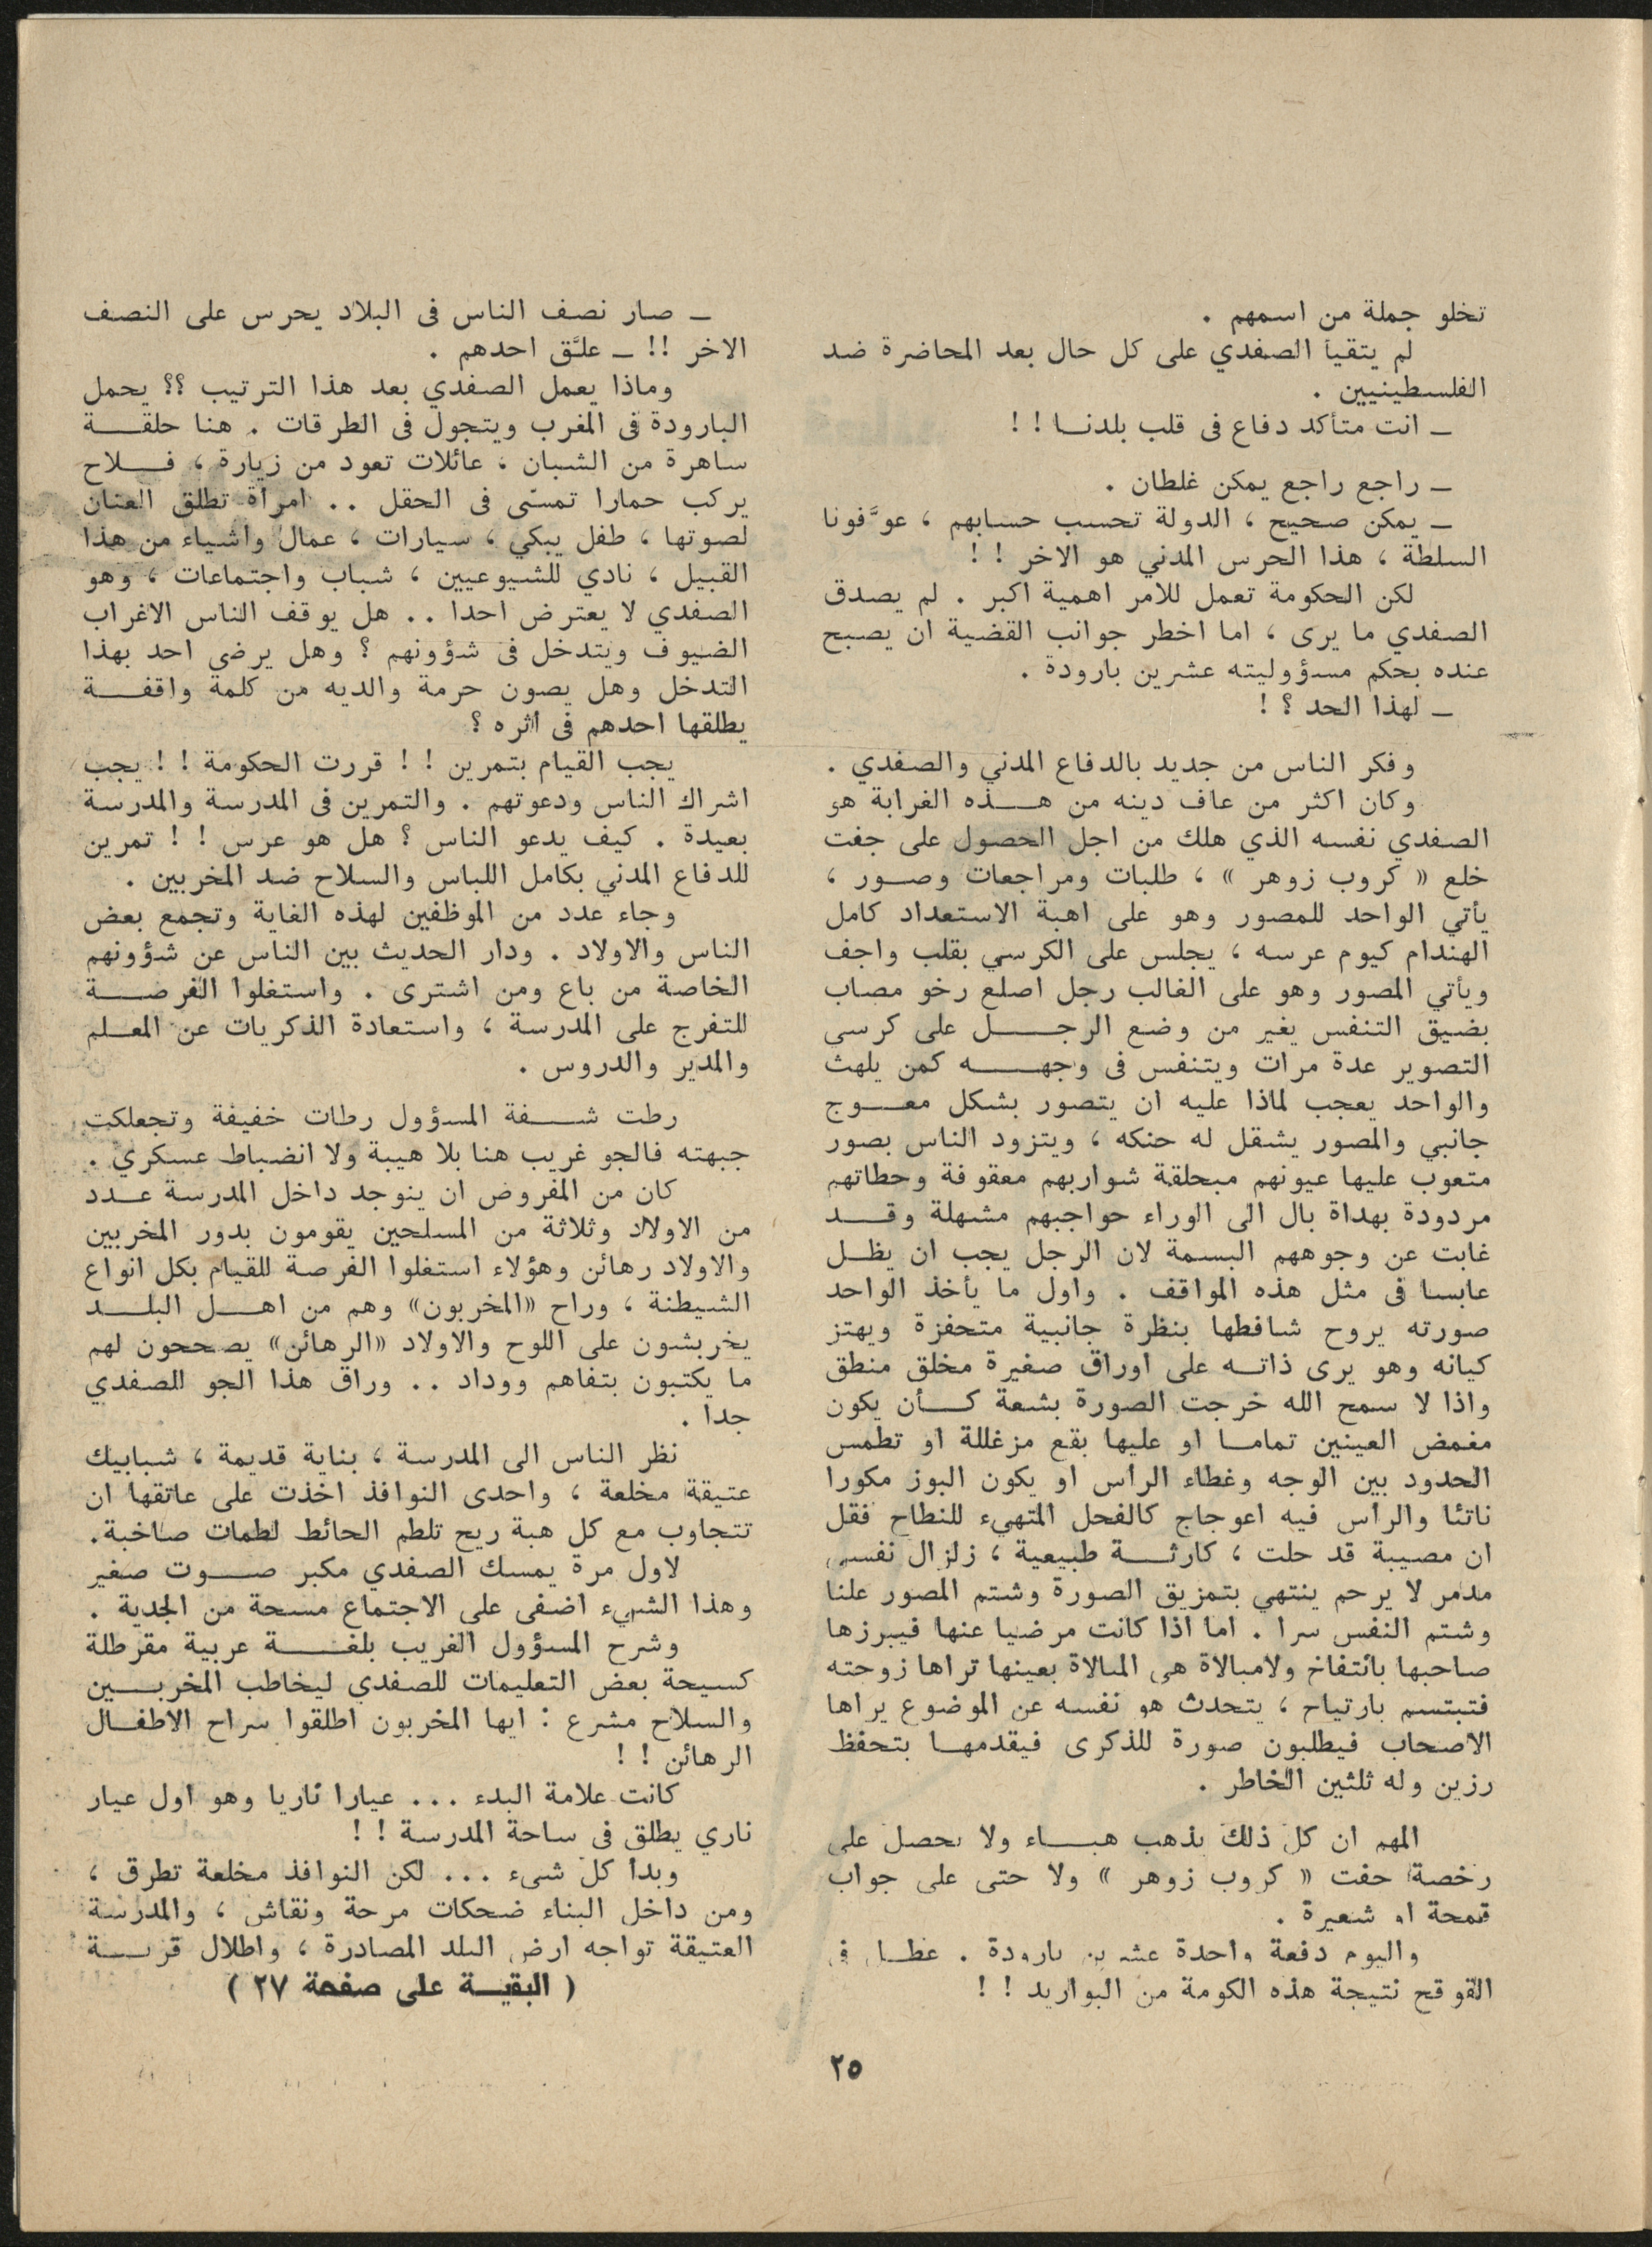 تخلو جملة من اسمهم .
لم يتقيأ الصفدي على كل حال بعد المحاضرة ضد
الفلسطينيين .
ـ انت متأكد دفاع فى قلب بلدنــا ! !
ـ راجع راجع يمكن غلطان .
ـ يمكن صحيح ، الدولة تحسب حسابهم ، عوَّفونا
السلطة ، هذا الحرس المدني هو الاخر ! !
لكن الحكومة تعمل للامر اهمية اكبر . لم يصدق
الصفدي ما يرى ، اما اخطر جوانب القضية ان يصبح
عنده بحكم مسؤوليته عشرين بارودة .
ـ لهذا الحد ؟ !
وفكر الناس من جديد بالدفاع المدني والصفدي .
وكان اكثر من عاف دينه من هـــذه الغرابة هو
الصفدي نفسه الذي هلك من اجل الحصول على جفت
خلع « كروب زوهر » ، طلبات ومراجعات وصــور ،
يأتي الواحد للمصور وهو على اهبة الاستعداد كامل
الهندام كيوم عرسه ، يجلس على الكرسي بقلب واجف
ويأتي المصور وهو على الغالب رجل اصلع رخو مصاب
بضيق التنفس يغير من وضع الرجـــل على كرسي
التصوير عدة مرات ويتنفس فى وجهــــه كمن يلهث
والواحد يعجب لماذا عليه ان يتصور بشكل معــوج
جانبي والمصور يشقل له حنكه ، ويتزود الناس بصور
متعوب عليها عيونهم مبحلقة شواربهم معقوفة وحطاتهم
مردودة بهداة بال الى الوراء حواجبهم مشهلة وقــد
غابت عن وجوههم البسمة لان الرجل يجب ان يظــل
عابسا فى مثل هذه المواقف . واول ما يأخذ الواحد
صورته يروح شافطها بنظرة جانبية متحفزة ويهتز
كيانه وهو يرى ذاتــه على اوراق صغيرة مخلق منطق
واذا لا سمح الله خرجت الصورة بشعة كــأن يكون
مغمض العينين تمامــا او عليها بقع مزغللة او تطمس
الحدود بين الوجه وغطاء الرأس او يكون البوز مكورا
ناتئا والرأس فيه اعوجاج كالفحل المتهيء للنطاح فقل
ان مصيبة قد حلت ، كارثــة طبيعية ، زلزال نفسي
مدمر لا يرحم ينتهي بتمزيق الصورة وشتم المصور علنا
وشتم النفس سرا . اما اذا كانت مرضيا عنها فيبرزها
صاحبها بانتفاخ ولامبالاة هي المبالاة بعينها تراها زوجته
فتبتسم بارتياح ، يتحدث هو نفسه عن الموضوع يراها
الاصحاب فيطلبون صورة للذكرى فيقدمهــا بتحفظ
رزين وله ثلثين الخاطر .
المهم ان كل ذلك يذهب هبــاء ولا يحصل على
رخصة جفت « كروب زوهر » ولا حتى على جواب
قمحة او شعيرة .
واليوم دفعة واحدة عشرين بارودة . فى
القوقح نتيجة هذه الكومة من البواريد ! !
ـ صار نصف الناس فى البلاد يحرس على النصف
الاخر !! ـ علـَّق احدهم .
وماذا يعمل الصفدي بعد هذا الترتيب ؟؟ يحمل
البارودة فى المغرب ويتجول فى الطرقات . هنا حلقــة
ساهرة من الشبان ، عائلات تعود من زيارة ، فــلاح
يركب حمارا تمسّى فى الحقل .. امرأة تطلق العنان
لصوتها ، طفل يبكي ، سيارات ، عمال واشياء من هذا
القبيل ، نادي للشيوعيين ، شباب واجتماعات ، وهو
الصفدي لا يعترض احدا .. هل يوقف الناس الاغراب
الضيوف ويتدخل فى شؤونهم ؟ وهل يرضى احد بهذا
التدخل وهل يصون حرمة والديه من كلمة واقفــة
يطلقها احدهم فى أثره ؟
يجب القيام بتمرين ! ! قررت الحكومة ! ! يجب
اشراك الناس ودعوتهم . والتمرين فى المدرسة والمدرسة
بعيدة . كيف يدعو الناس ؟ هل هو عرس ! ! تمرين
للدفاع المدني بكامل اللباس والسلاح ضد المخربين .
وجاء عدد من الموظفين لهذه الغاية وتجمع بعض
الناس والاولاد . ودار الحديث بين الناس عن شؤونهم
الخاصة من باع ومن اشترى . واستغلوا الفرصـــة
للتفرج على المدرسة ، واستعادة الذكريات عن المعـلم
والمدير والدروس .
رطت شـــفة المسؤول رطات خفيفة وتجعلكت
جبهته فالجو غريب هنا بلا هيبة ولا انضباط عسكري .
كان من المفروض ان ينوجد داخل المدرسة عــدد
من الاولاد وثلاثة من المسلحين يقومون بدور المخربين
والاولاد رهائن وهؤلاء استغلوا الفرصة للقيام بكل انواع
الشيطنة ، وراح «المخربون» وهم من اهــل البلــد
يخربشون على اللوح والاولاد «الرهائن» يصححون لهم
ما يكتبون بتفاهم ووداد .. وراق هذا الجو للصفدي
جدا .
نظر الناس الى المدرسة ، بناية قديمة ، شبابيك
عتيقة مخلعة ، واحدى النوافذ اخذت على عاتقها ان
تتجاوب مع كل هبة ريح تلطم الحائط لطمات صاخبة.
لاول مرة يمسك الصفدي مكبر صــوت صغير
وهذا الشيء اضفى على الاجتماع مسحة من الجدية .
وشرح المسؤول الغريب بلغـــة عربية مقرطلة
كسيحة بعض التعليمات للصفدي ليخاطب المخربــين
والسلاح مشرع : ايها المخربون اطلقوا سراح الاطفـال
الرهائن ! !
كانت علامة البدء ... عيارا ناريا وهو اول عيار
ناري يطلق فى ساحة المدرسة ! !
وبدأ كل شيء ... لكن النوافذ مخلعة تطرق ،
ومن داخل البناء ضحكات مرحة ونقاش ، والمدرسة
العتيقة تواجه ارض البلد المصادرة ، واطلال قريــة
( البقيــة على صفحة ٢٧ )
٢٥